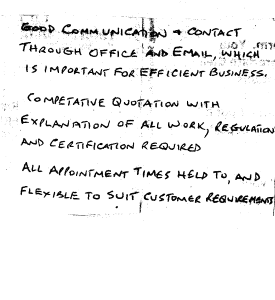 GOOD COMMUNICATION + CONTACT
THROUGH OFFICE AND EMAIL, WHICH
IS IMPORTANT FOR EFFICIENT BUSINESS.
COMPETATIVE QUOTATION WITH
EXPLANATION OF ALL WORK, REGULATION
AND CERTIFICATION REQUIRED
ALL APPOINTMENT TIMES HELD TO, AND
FLEXIBLE TO SUIT CUSTOMER REQUIREMENTS